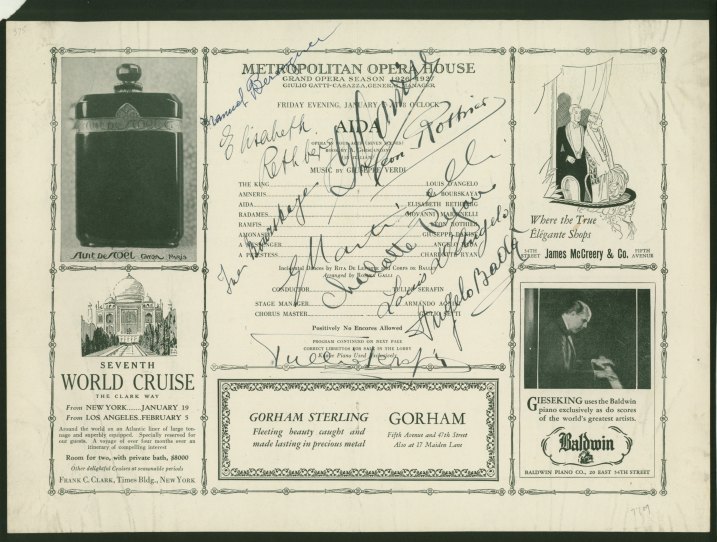 375
METROPOLITAN OPERA HOUSE
GRAND OPERA SEASON 1926-1927
GIULIO GATTI-CASAZZA, GENERAL MANAGER
FRIDAY EVENING, JANUARY
O'CLOCK
AIDA
MUSIC BY GIUSEPPE VERDI
THE KING LOUIS D'ANGELO
AMNERIS BOURSKAYA
AIDA ELISABETH RETHBERG
RADAMES GIOVANNI MARTINELLI
RAMFIS LEON ROTHIER
AMONASRO GIUSEPPE DANISE
A MESSENGER ANGELO BADA
A PRIESTESS CHARLOTTE RYAN
Incidental Dances by RITA DE LEPORTE and CORPS DE BALLET
Arranged by ROSINA GALLI
CONDUCTOR TULLIO SERAFIN
STAGE MANAGER ARMANDO AGNINI
CHORUS MASTER GIULIO SETTI
Positively No Encores Allowed
PROGRAM CONTINUED ON NEXT PAGE
CORRECT LIBRETTOS FOR SALE IN THE LOBBY
Piano Used Exclusively
Elisabeth
Rethberg
Leon Rothier
Ina Bourskaya
G Martinelli
Charlotte Ryan
Louis d'Angelo
Angelo Bada
Tullio Serafin
NUIT DE NOËL CARON PARIS
SEVENTH
WORLD CRUISE
THE CLARK WAY
From NEW YORK......JANUARY 19
From LOS ANGELES..FEBRUARY 5
Around the world on an Atlantic liner of large ton-
nage and superbly equipped. Specially reserved for
our guests. A voyage of over four months over an
itinerary of compelling interest
Room for two, with private bath, $8000
Other delightful Cruises at seasonable periods
FRANK C. CLARK, Times Bldg., NEW YORK
GORHAM STERLING
Fleeting beauty caught and
made lasting in precious metal
GORHAM
Fifth Avenue and 47th Street
Also at 17 Maiden Lane
Where the True
Élégante Shops
34TH STREET James McCreery & Co. FIFTH AVENUE
GIESEKING uses the Baldwin
piano exclusively as do scores
of the world's greatest artists.
Baldwin
BALDWIN PIANO CO., 20 EAST 54TH STREET